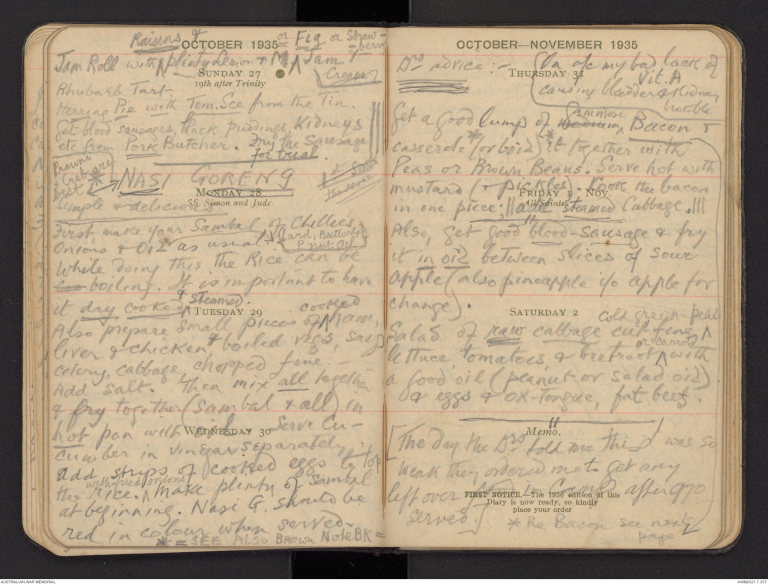 Raisins &
OCTOBER 1935 or Fig or Straw-
berry
Jam Roll with Plenty Lemon & M Jam &
Cream
SUNDAY 27
19th after Trinity
Rhubarb Tart
Herring Pie with Tom. Sce from the Tin.
Get blood sausages, black puddings, Kidneys
etc from Pork Butcher. Try the Sausage
for trial.
Prawns
& Crab are
best
* NASI GORENG
MONDAY 28
SS. Simon and Jude
Simple & delicious
First make your Sambal of Chillees
Onions & Oil as usual
Lard, Butter or
P. nut Oil
While doing this, the Rice can be
boiling. It is important to have
it dry cooked & steamed.
TUESDAY 29
Also prepare small pieces of cooked ham,
liver & chicken, & boiled vegs, say
celery, cabbage, chopped fine.
Add salt. Then mix all together
& fry together (Sambal & all) in
hot pan with oil. Serve Cu-
WEDNESDAY 30
cumber in vinegar separately.
Add strips of cooked eggs to top
with fried onions
the rice. Make plenty of Sambal
at beginning. Nasi G. should be
red in colour when served.
* = SEE ALSO BROWN NoteBK =
OCTOBER—NOVEMBER 1935
Drs advice:-
(Va o/c my bad lack of
Vit. A
causing bladder & Kidney
trouble
THURSDAY 31
Get a good lump of Gammon Bacon &
casserole (or boil) it together with
Peas or Brown Beans. Serve hot with
mustard (& pickles). Cook the bacon
FRIDAY 1 NOV.
All Saints
in one piece; and steamed Cabbage.!!!
Also, get good blood-sausage & fry
it in oil between slices of sour
apple (also pineapple i/o apple for
change).
SATURDAY 2
cold green peas
or carrots
Salad of raw cabbage cut fine,
lettuce tomatoes & beetroot with
a good oil (peanut or salad oil)
& eggs & ox-tongue, fat beef.
Memo.
[The day the Drs told me this I was so
weak they ordered me to get any
left over after
FIRST NOTICE.—The 1936 edition of this
Diary is now ready, so kindly
place your order
served.]
* Re Bacon see next
page
AUSTRALIAN WAR MEMORIAL